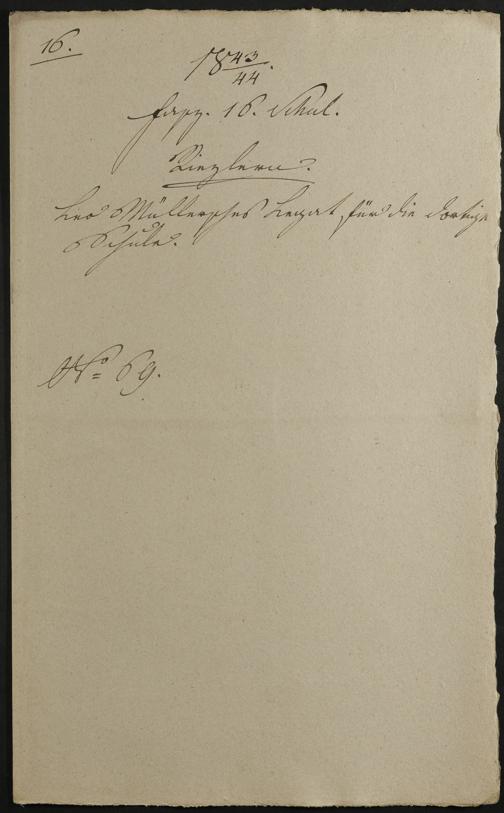 16.
1843/44.
Fasz. 16. Schul.
Riezlern.
Leo Müllersches Legat für die dortige
Schule.
No 69.